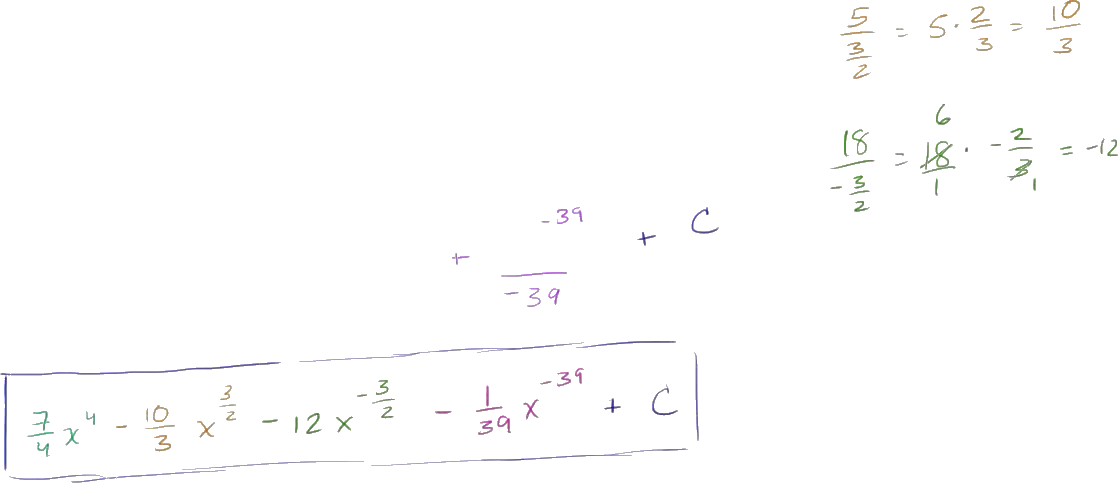 5/(3/2) = 5 · 2/3 = 10/3
18/(-3/2) = 6 18/1 · -2/3 1 = -12
+ ^{-39}/-39 + C
7/4 x^4 - 10/3 x^{3/2} - 12 x^{-3/2} - 1/39 x^{-39} + C